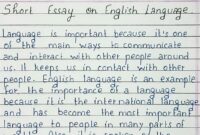 Short Essay on English Language
Language is important because it's one
of the main ways to communicate
and interact with other people around
us. It keeps us in contact with other
people. English language is an example
for the importance of a language
because it is the international language
and has become the most important
language to people in many parts of